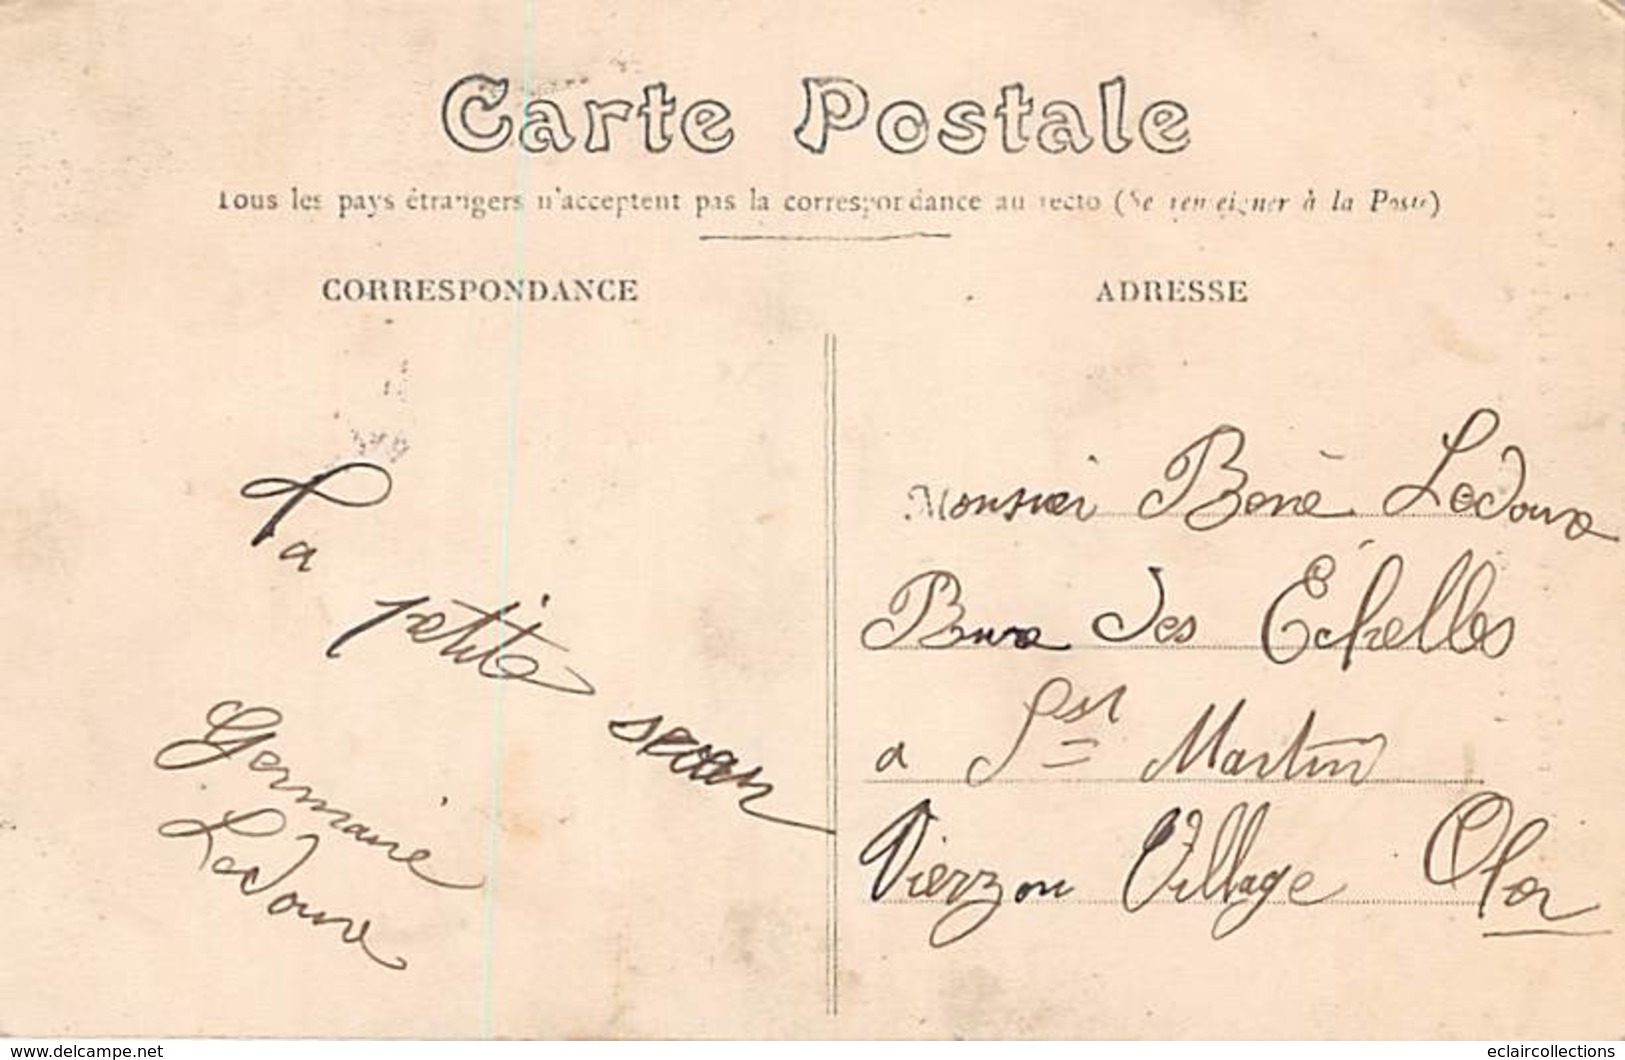 Carte Postale
Tous les pays étrangers n'acceptent pas la correspondance au recto (Se renseigner à la Poste)
CORRESPONDANCE
ADRESSE
Ta
petite
Germaine
Ledoux
Monsieur René Ledoux
Rue des Echelles
a St Martin
Vierzon Village
www.delcampe.net
eclaircollections